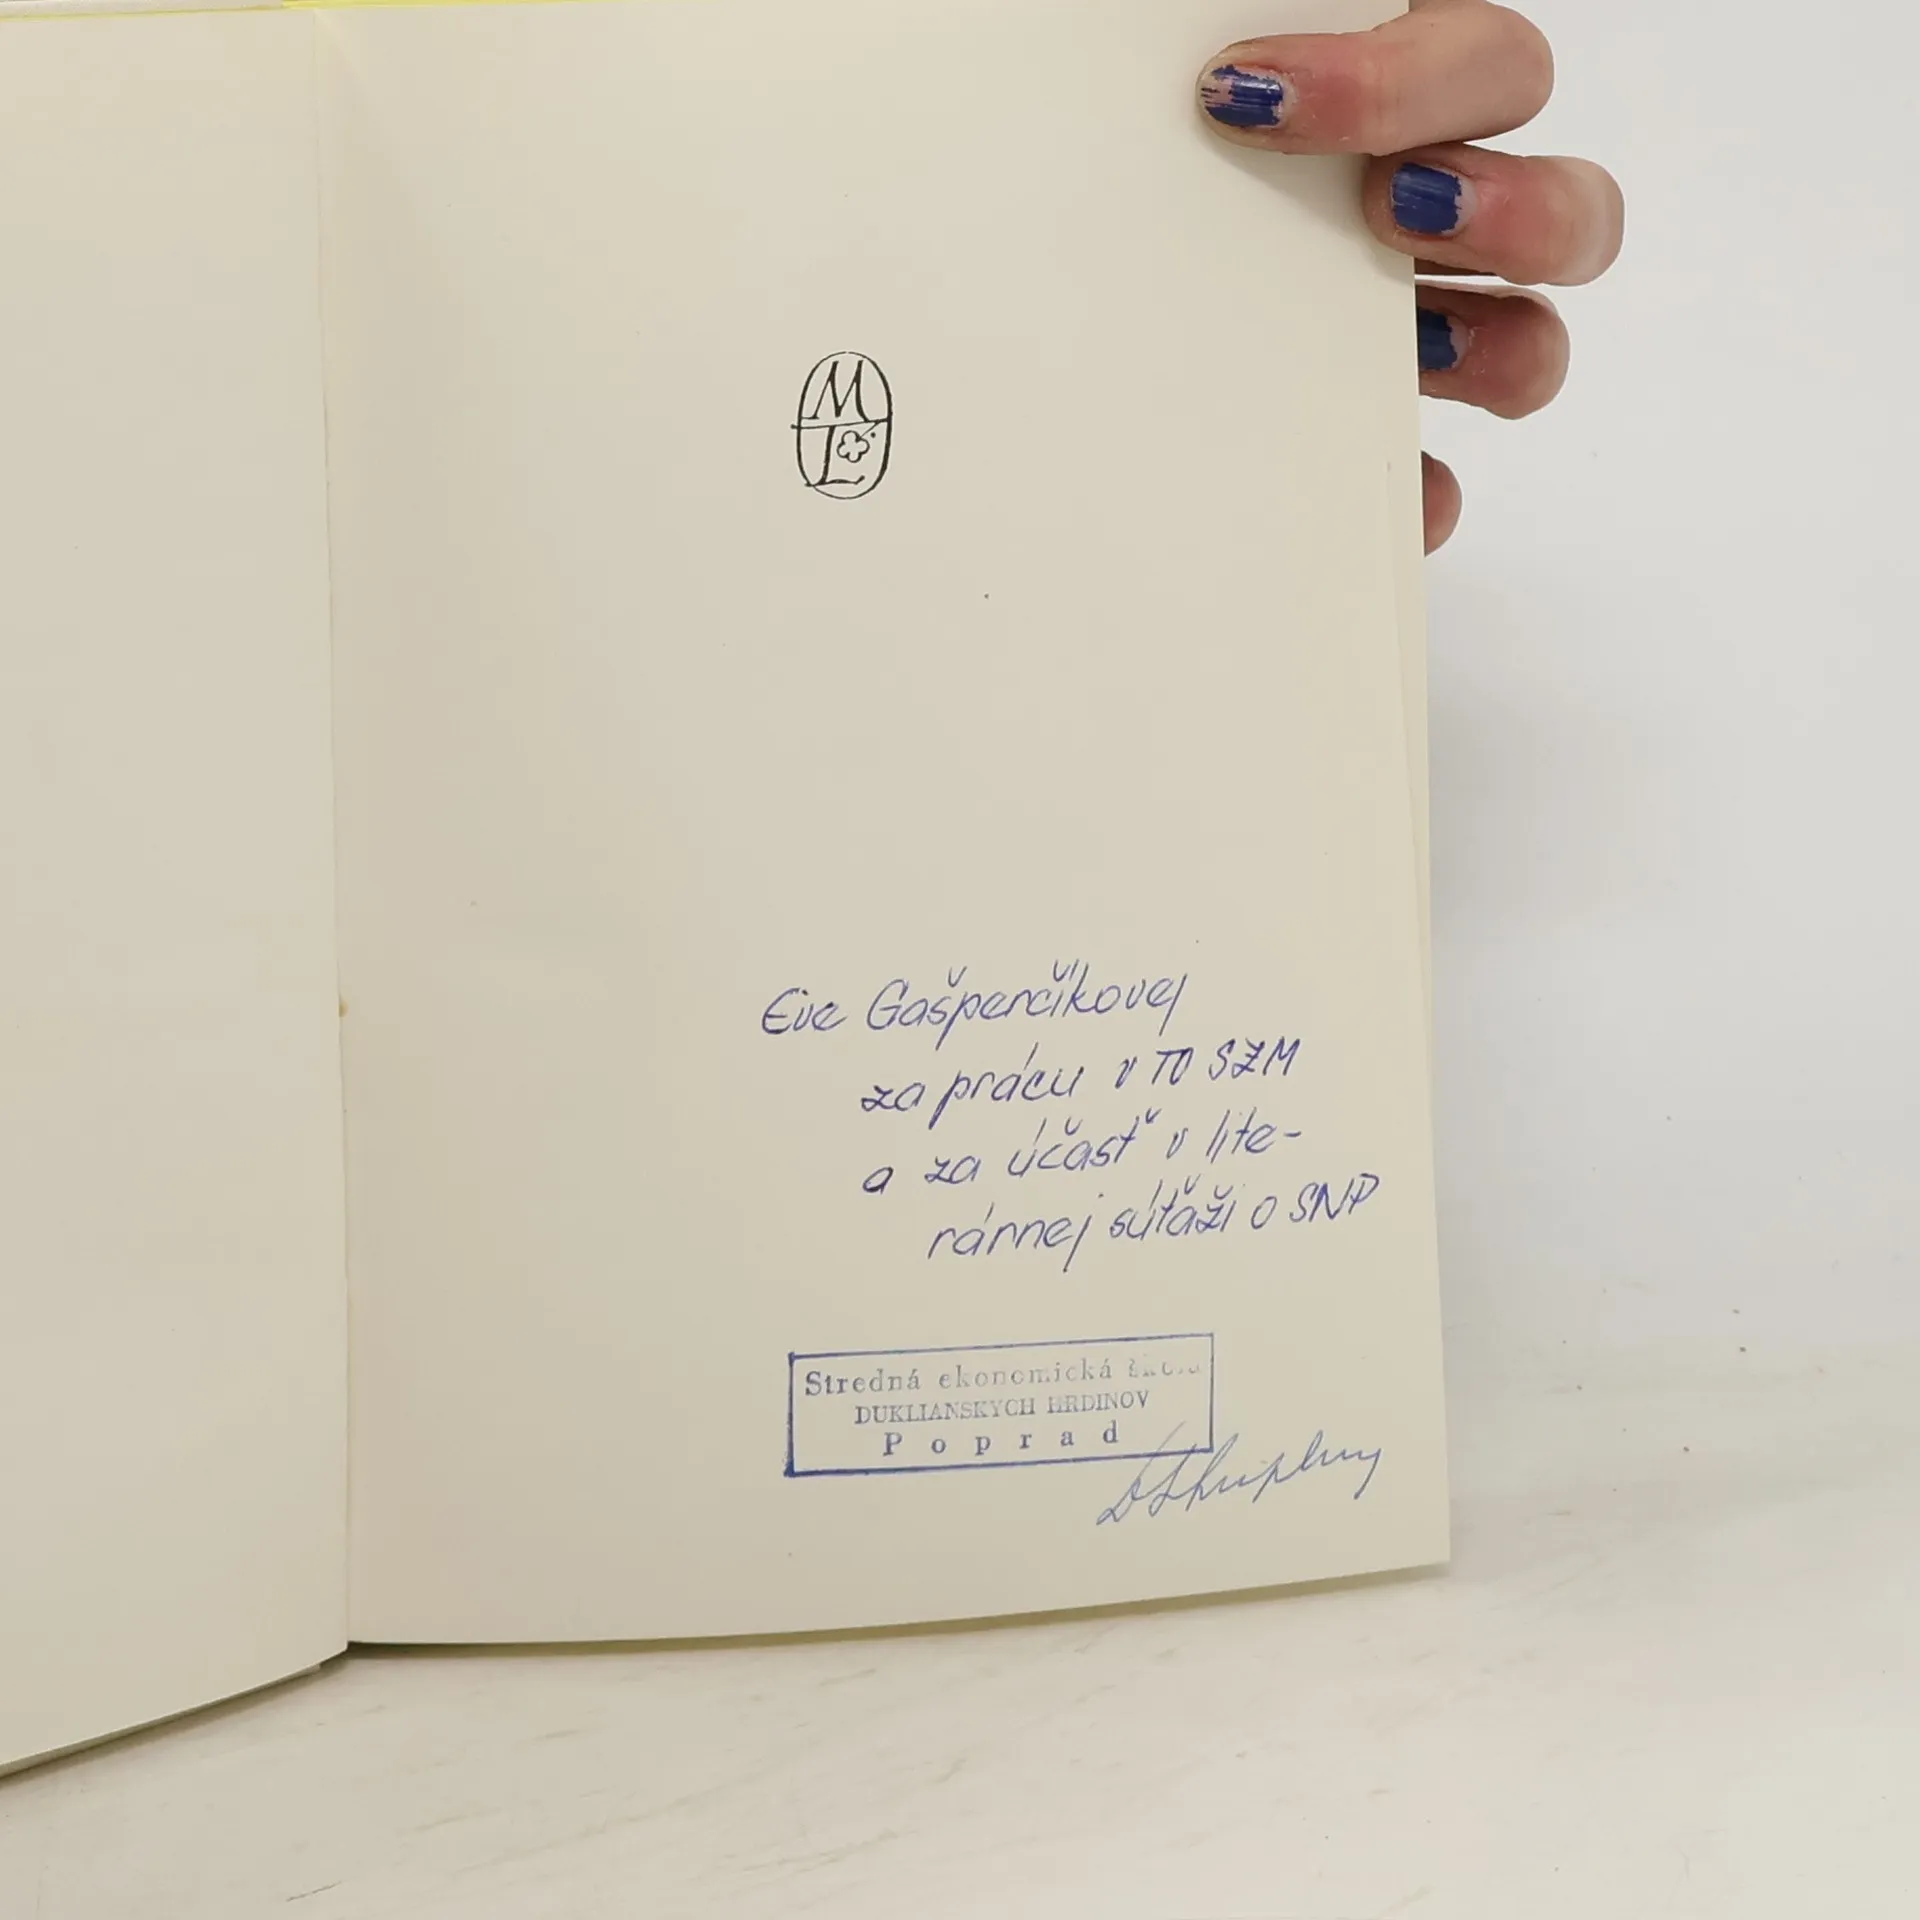 M
L
Eve Gašperčíkovej
za prácu v TO SZM
a za účasť v lite-
rárnej súťaži o SNP
Stredná ekonomická škola
DUKLIANSKYCH HRDINOV
Poprad